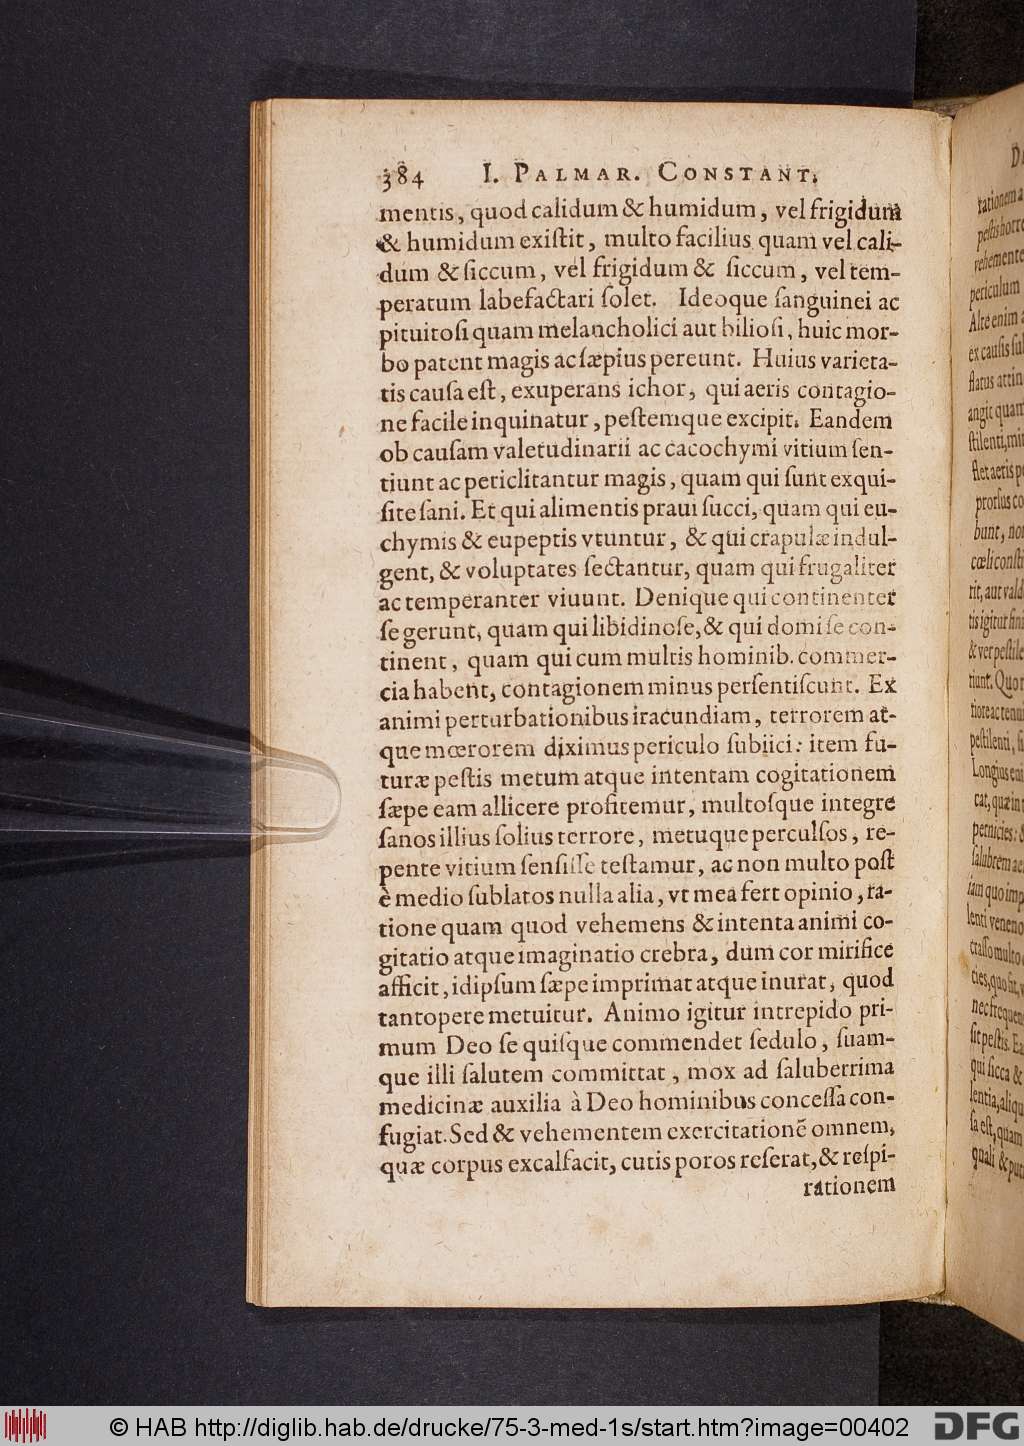 384 I. PALMAR. CONSTANT.
mentis, quod calidum & humidum, vel frigidum
& humidum exiſtit, multo facilius quam vel cali-
dum & ſiccum, vel frigidum & ſiccum, vel tem-
peratum labefactari ſolet. Ideoque ſanguinei ac
pituitoſi quam melancholici aut bilioſi, huic mor-
bo patent magis ac ſæpius pereunt. Huius varieta-
tis cauſa eſt, exuperans ichor, qui aeris contagio-
ne facile inquinatur, peſtemque excipit. Eandem
ob cauſam valetudinarii ac cacochymi vitium ſen-
tiunt ac periclitantur magis, quam qui ſunt exqui-
ſite ſani. Et qui alimentis praui ſucci, quam qui eu-
chymis & eupeptis vtuntur, & qui crapulæ indul-
gent, & voluptates ſectantur, quam qui frugaliter
ac temperanter viuunt. Denique qui continenter
ſe gerunt, quam qui libidinoſe, & qui domi ſe con-
tinent, quam qui cum multis hominib. commer-
cia habent, contagionem minus perſentiſcunt. Ex
animi perturbationibus iracundiam, terrorem at-
que mœrorem diximus periculo ſubiici: item fu-
turæ peſtis metum atque intentam cogitationem
ſæpe eam allicere profitemur, multoſque integre
ſanos illius ſolius terrore, metuque perculſos, re-
pente vitium ſenſiſſe teſtamur, ac non multo poſt
è medio ſublatos nulla alia, vt mea fert opinio, ra-
tione quam quod vehemens & intenta animi co-
gitatio atque imaginatio crebra, dum cor mirifice
afficit, idipſum ſæpe imprimat atque inurat, quod
tantopere metuitur. Animo igitur intrepido pri-
mum Deo ſe quiſque commendet ſedulo, ſuam-
que illi ſalutem committat, mox ad ſaluberrima
medicinæ auxilia à Deo hominibus conceſſa con-
fugiat. Sed & vehementem exercitationẽ omnem,
quæ corpus excalfacit, cutis poros reſerat, & reſpi-
rationem
tationem a
peſtis horre
vehemente
periculum
Alte enim a
ex cauſis ſul
flatus attin
angit quam
ſtilenti, mi
flet aeris p
prorſus co
bunt, non
cœli conſti
rit, aut vald
tis igitur fini
& ver peſtile
tiunt. Quor
tiore ac tenui
peſtilenti, ſi
Longius eni
cat, quæ in t
pernicies: &
ſalubrem ae
iam quo imp
lenti veneno
craſſo multo
cies, quo fit, v
nec frequen
ſit peſtis. Ea
qui ſicca &
lentia, aliqu
ſa eſt, quam
quali & put
© HAB http://diglib.hab.de/drucke/75-3-med-1s/start.htm?image=00402 DFG